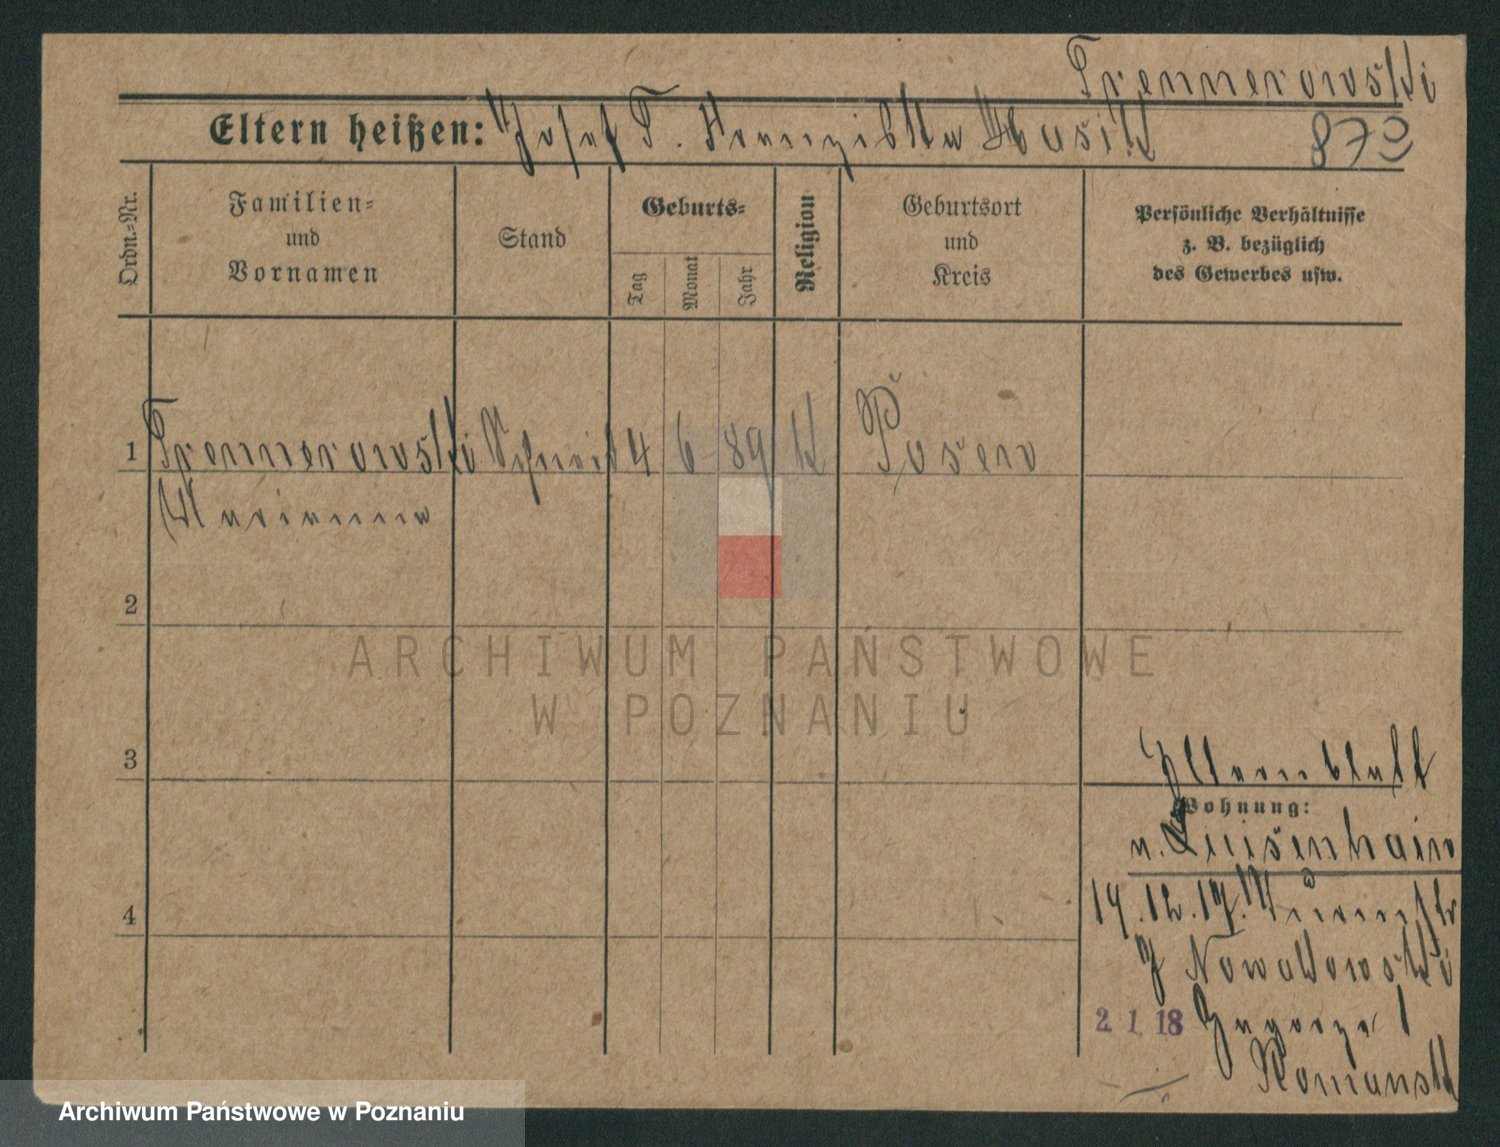 Trennerowski
Eltern heißen: Josef T. Franziska Musik 873
Ordn.-Nr.
Familien-
und
Vornamen
Stand
Geburts-
Tag
Monat
Jahr
Religion
Geburtsort
und
Kreis
Persönliche Verhältnisse
z. B. bezüglich
des Gewerbes usw.
1 Trennerowski Schneid 4 6 89 k Posen
Marianna
2
3
4
Elternblatt
Wohnung:
n. Luisenhain
19.12.17.
Nowakowski
2 1 18
ARCHIWUM PAŃSTWOWE
W POZNANIU
Archiwum Państwowe w Poznaniu